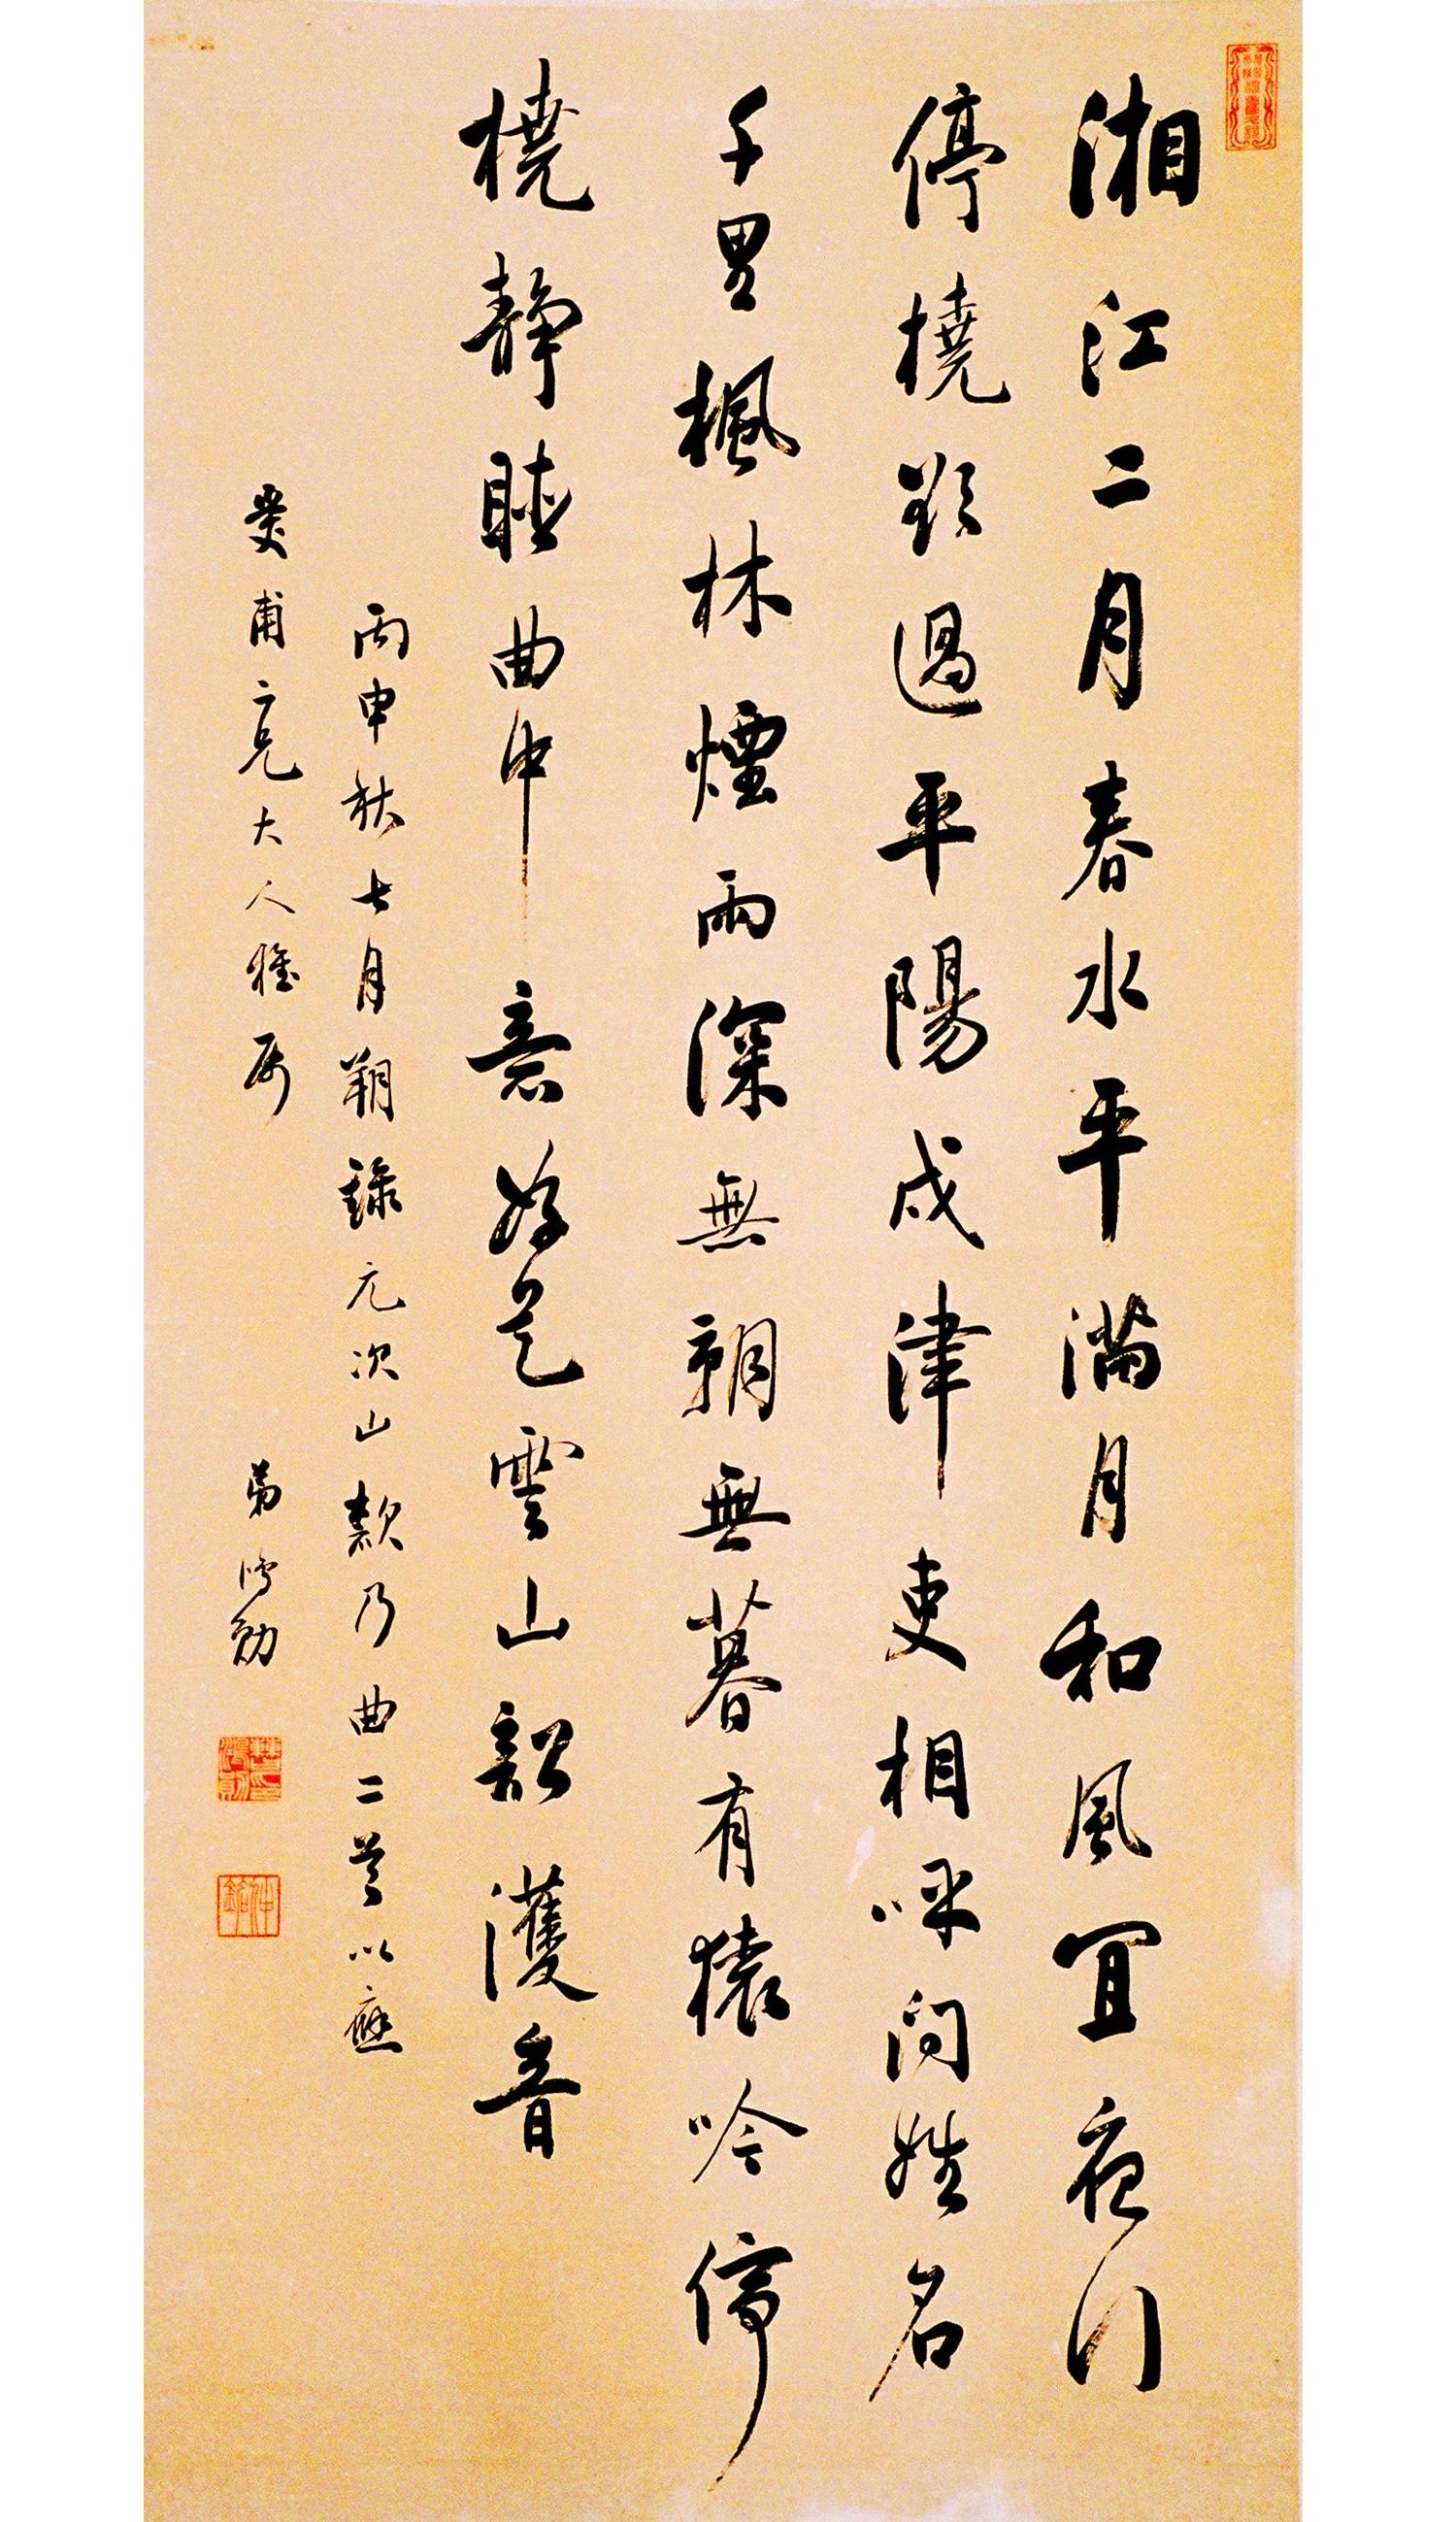 湘江二月春水平滿月和風宜夜行
停橈欲過平陽戍津吏相呼問姓名
千里楓林煙雨深無朝無暮有猿吟停
橈靜聽曲中意好是雲山韶濩音
丙申秋七月朔錄元次山欸乃曲二首以應
甫二兄大人雅屬
弟鴻勛